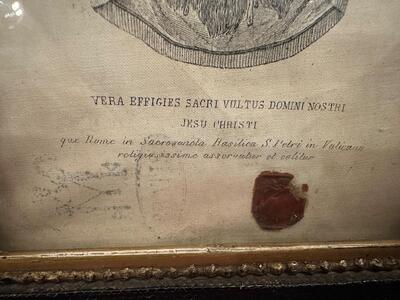 VERA EFFIGIES SACRI VULTUS DOMINI NOSTRI
JESU CHRISTI
quæ Romæ in Sacrosancta Basilica S. Petri in Vaticano
religiosissime asservatur et colitur